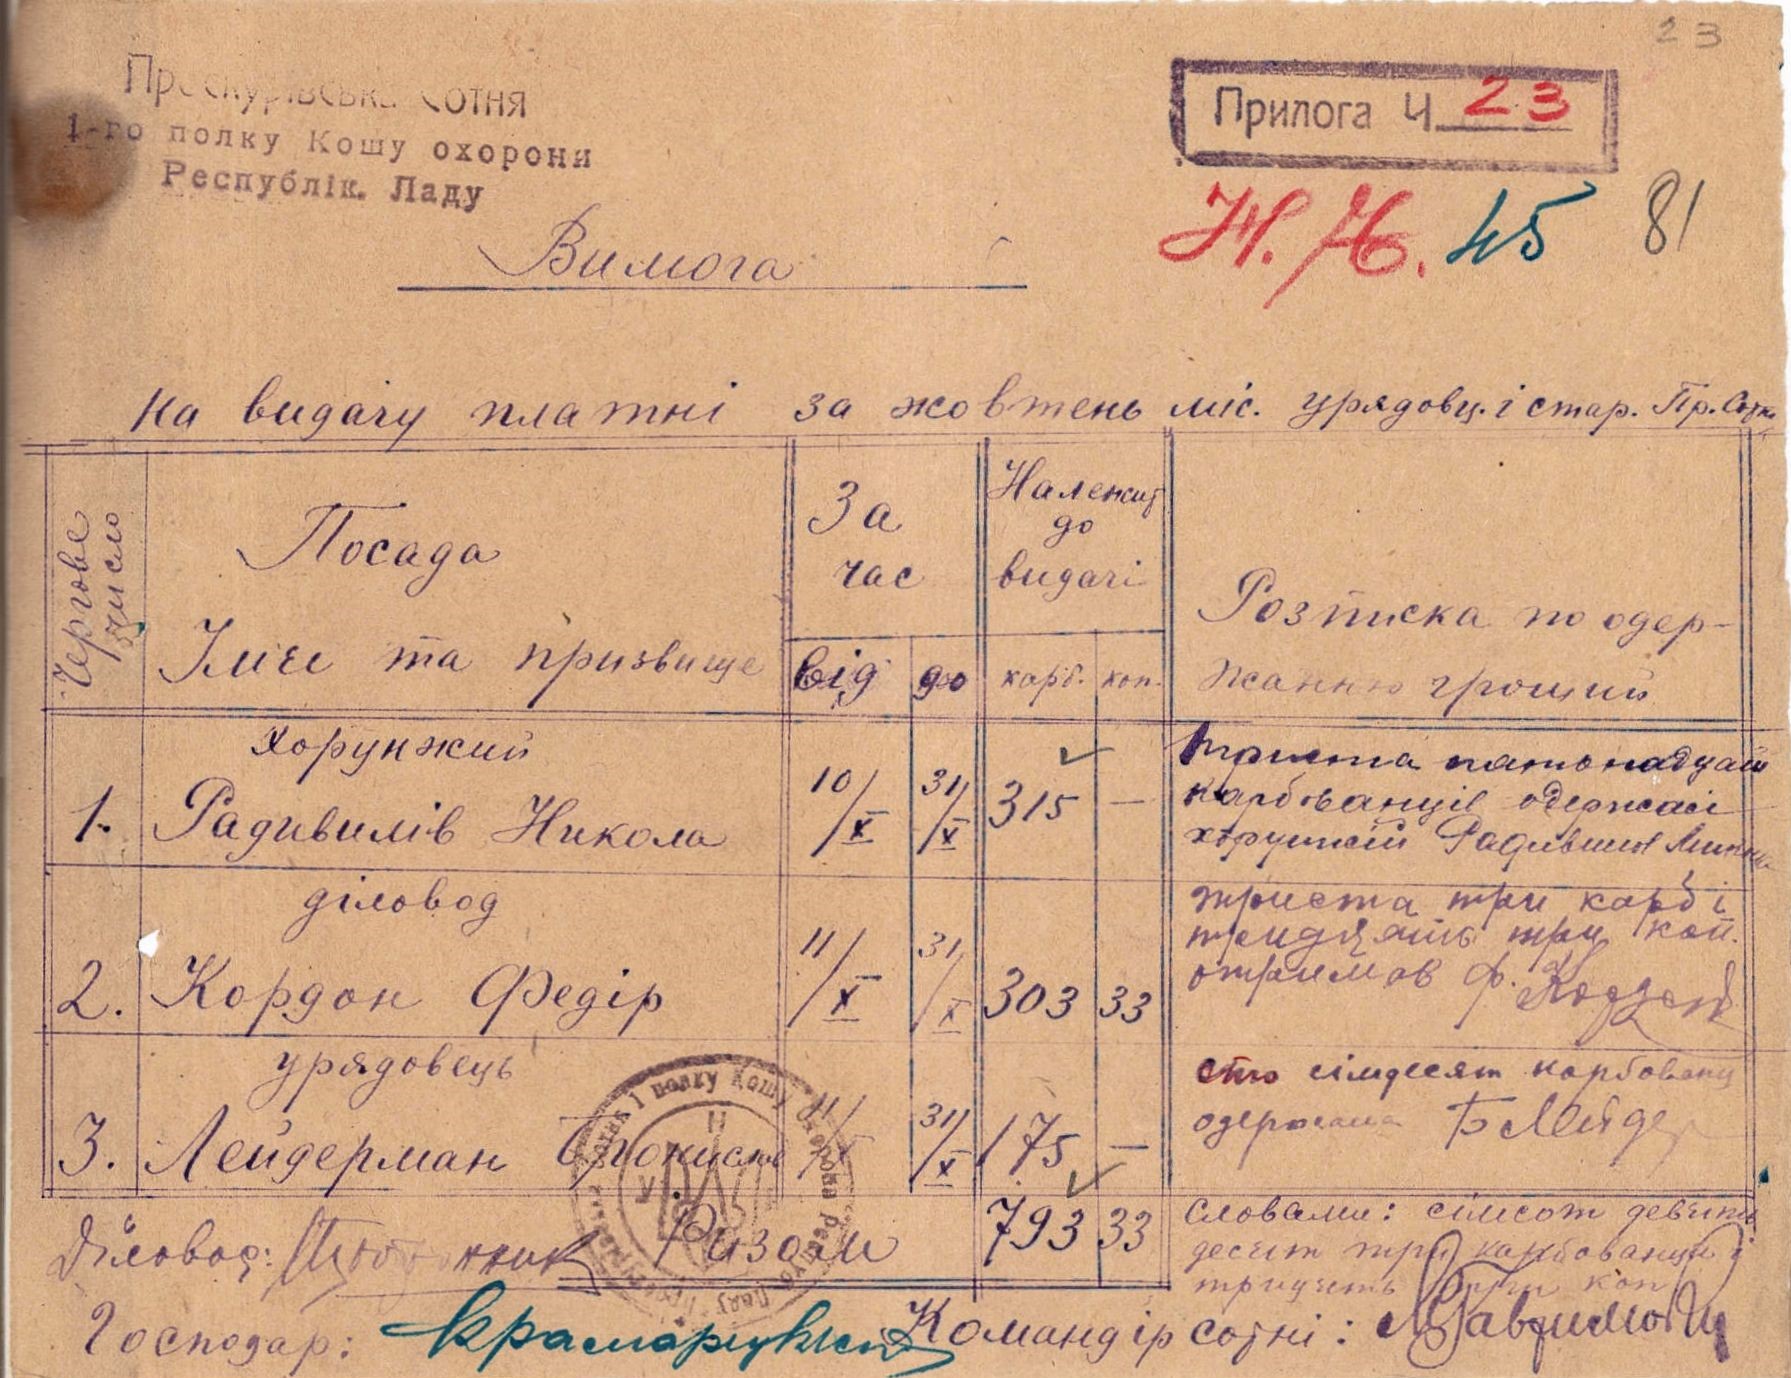 23
Проскурівська сотня
1-го полку Кошу охорони
Республік. Ладу
Прилога Ч. 23
45
81
Вимога
на видачу платні за жовтень міс. урядовц. і стар. Пр. Сотн.
Чергове число
Посада
Імҍє та призвище
За час
від до
Належит до видачі
карб. коп.
Розписка по одер-
жанню гроший
1. хорунжий
Радивилів Никола
10/X 31/X 315 —
триста пятонадцать
карбованців одержав
хорунжий Радивилів
2. діловод
Кордон Федір
11/X 31/X 303 33
триста три карб і
тридцять три коп.
отримов Ф. Кордон
3. урядовець
Лейдерман
11/X 31/X 175 —
сто сімдесят карбованц
Б Лейдер
Разом 793 33
словами: сімсот девять
десят три карбованци і
тридцять три коп
Діловод:
Господар:
Командір сотні: